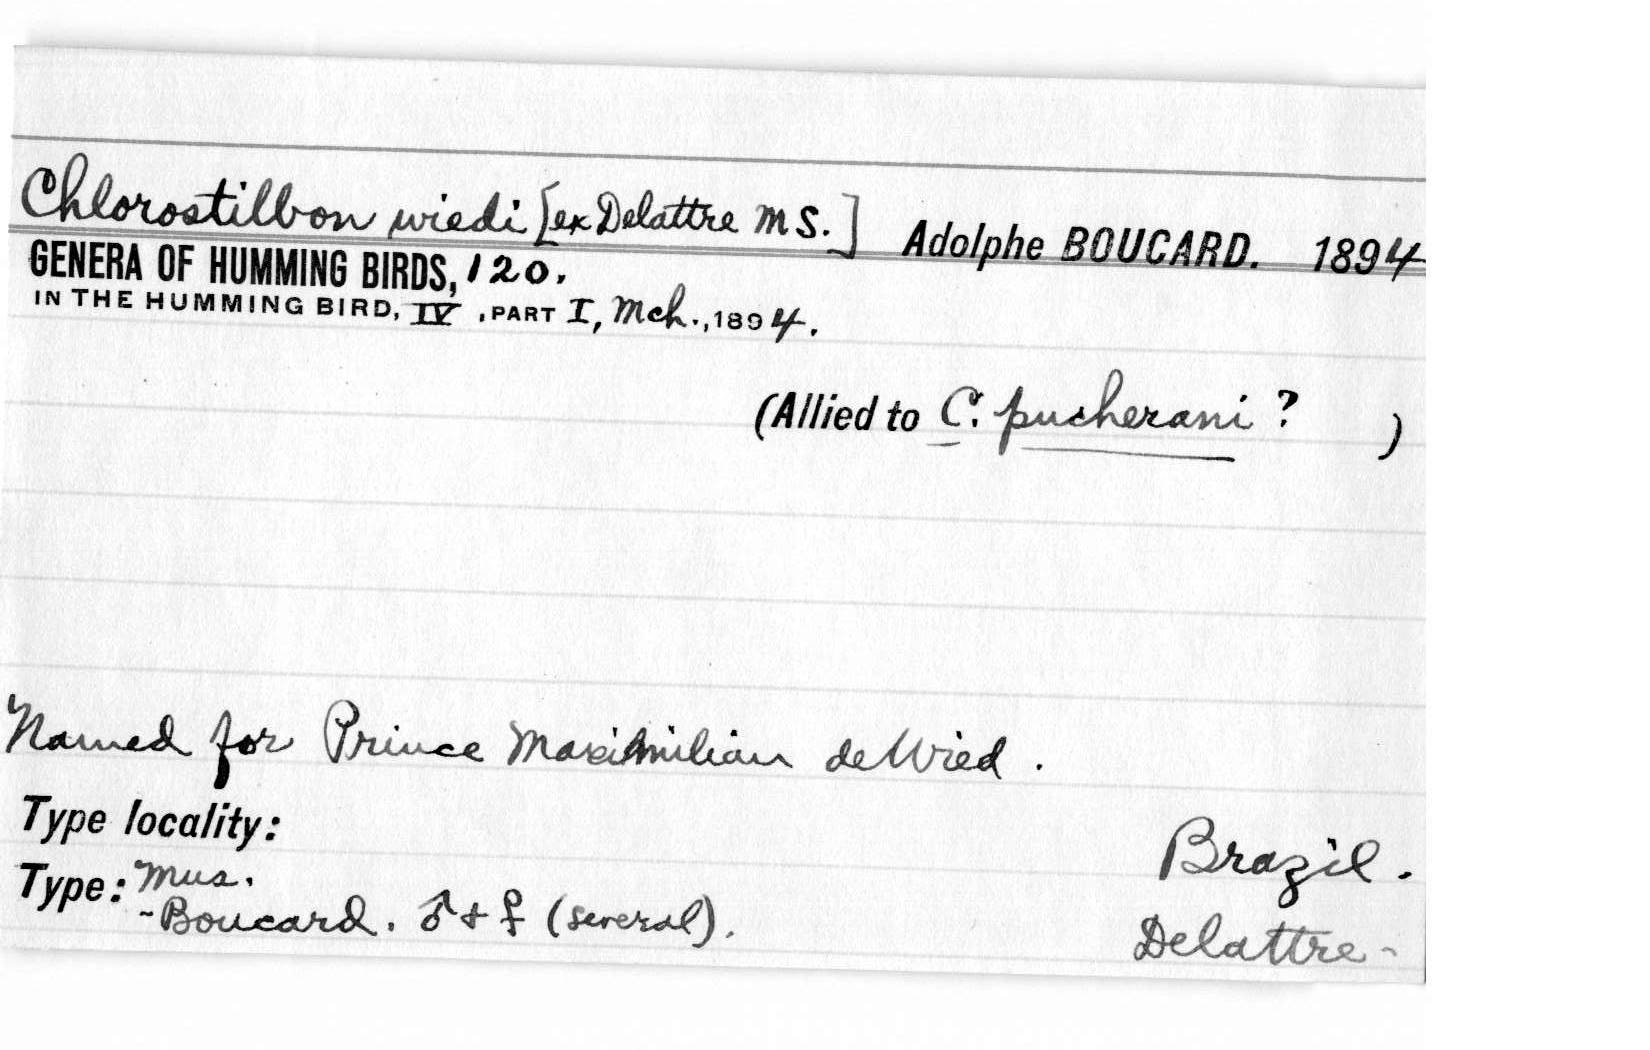 Chlorostilbon wiedi [ex Delattre MS.] Adolphe BOUCARD. 1894
GENERA OF HUMMING BIRDS, 120.
IN THE HUMMING BIRD, IV, PART I, Mch., 1894.
(Allied to C. pucherani ? )
Named for Prince Maximilian de Wied.
Type locality: Brazil.
Type: Mus.
Boucard. ♂ + ♀ (several). Delattre-